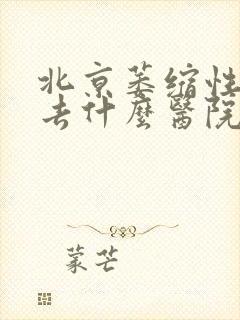 北京萎缩性
去什麼醫院
蒙芒